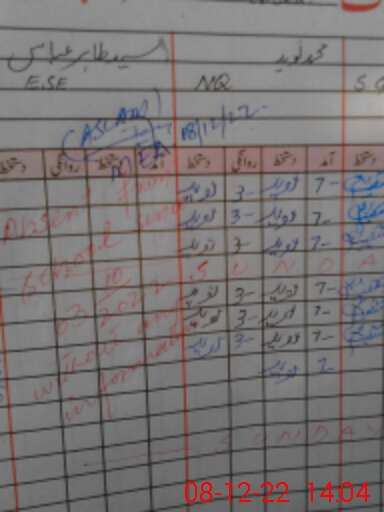 محمد نوید السید طاہر عباس
S.G NQ E.SE
(ASLAM)
MEA 08/12/22
دستخط آمد دستخط روانگی دستخط آمد دستخط روانگی دستخط
7- نوید 3- نوید
7- نوید 3- نوید
7- نوید 3- نوید
S U N D A
7- نوید 3- نوید
7- نوید 3- نوید
7- نوید 3- نوید
7- نوید
Absent from
School since
03/10/2022
without any
information
S U N D A Y
08-12-22 14:04